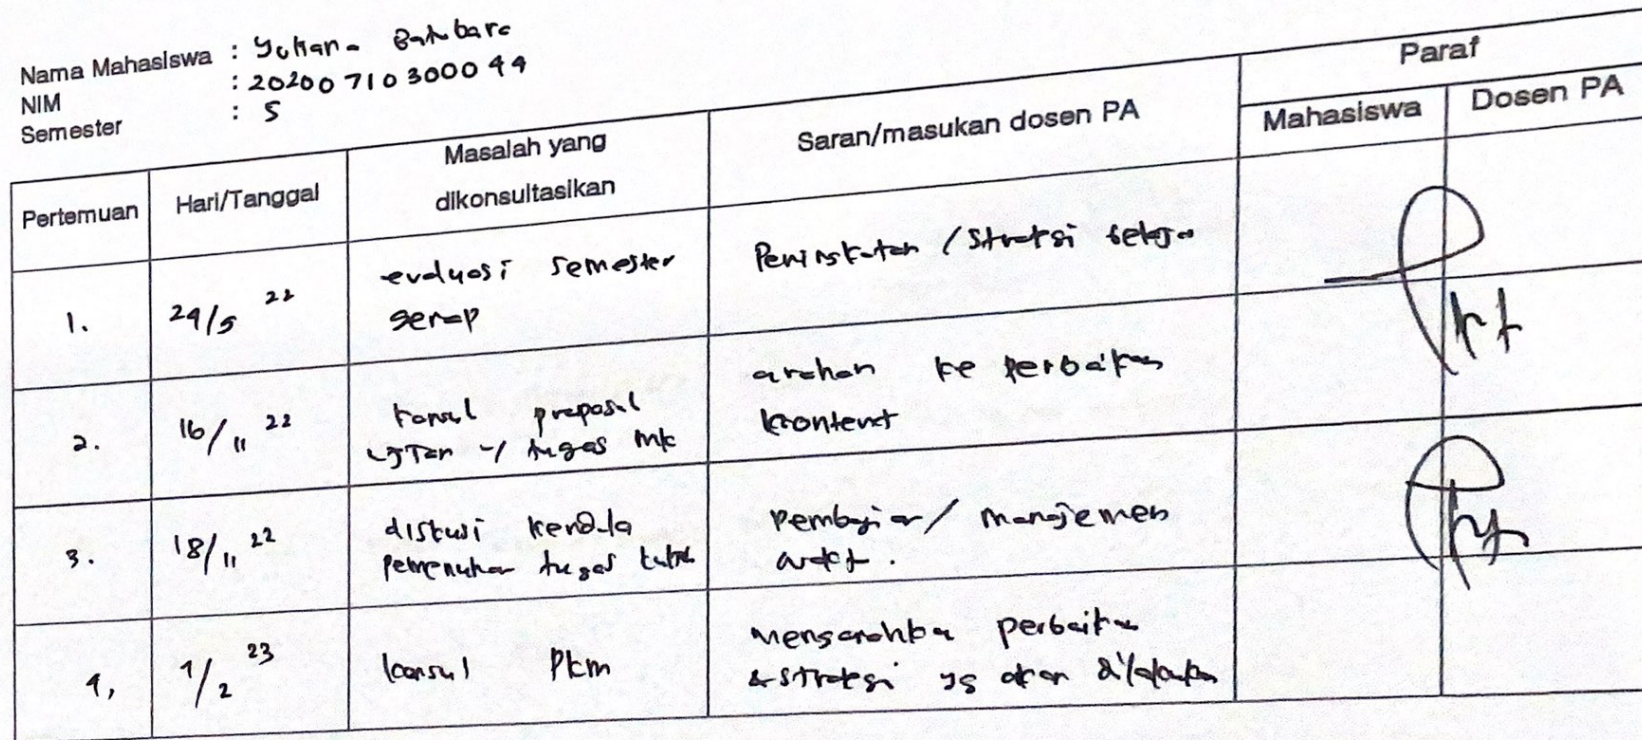 Nama Mahasiswa : Yohana Batubara
NIM : 20200710300044
Semester : 5
Pertemuan
Hari/Tanggal
Masalah yang
dikonsultasikan
Saran/masukan dosen PA
Paraf
Mahasiswa
Dosen PA
1.
24/5 22
evaluasi semester
genap
Peningkatan / Strategi belajar
2.
16/11 22
konsul proposal
tugas mk
arahan ke perbaikan
kontent
3.
18/11 22
diskusi kendala
pemenuhan tugas
pembagian / manajemen
4,
1/2 23
konsul PKM
mengarahkan perbaikan
& strategi yg akan dilakukan